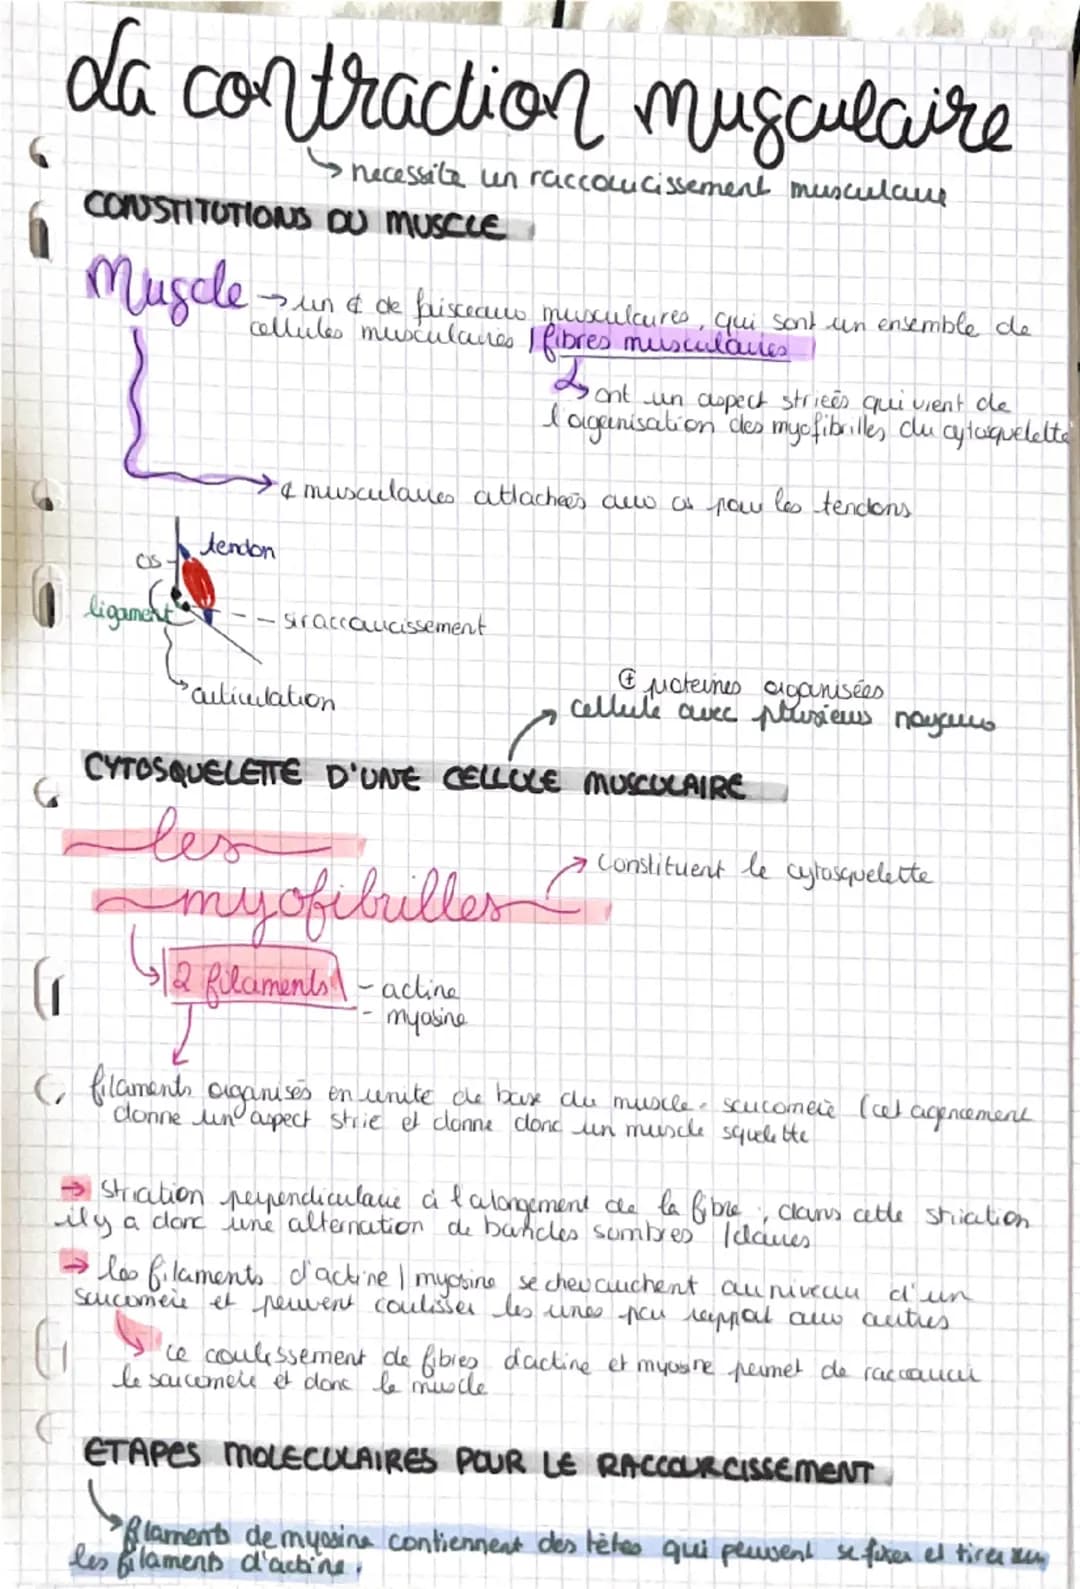 La contraction musculaire
↳ necessite un raccourcissement musculaire
CONSTITUTIONS DU MUSCLE
Muscle → un ¢ de faisceaux musculaires, qui sont un ensemble de
cellules musculaires / fibres musculaires
↳ ont un aspect striées qui vient de
l'organisation des myofibrilles du cytosquelette
→ ¢ musculaires attachées aux os par les tendons
tendon
os
ligament
-- si raccourcissement
articulation
⊕ proteines organisées
cellule avec plusieurs noyaux
CYTOSQUELETTE D'UNE CELLULE MUSCULAIRE
les
myofibrilles
→ constituent le cytosquelette
↳ 2 filaments
- actine
- myosine
filaments organisés en unite de base du muscle = sarcomère (cet agencement
donne un aspect strie et donne donc un muscle squelette
→ Striation perpendiculaire à l'alongement de la fibre, dans cette striation
il y a donc une alternation de bandes sombres / claires
→ les filaments d'actine / myosine se chevauchent au niveau d'un
sarcomère et peuvent coulisser les unes par rapport aux autres
↳ ce coulissement de fibres d'actine et myosine permet de raccourcir
le sarcomère et donc le muscle
ETAPES MOLECULAIRES POUR LE RACCOURCISSEMENT
↳ filaments de myosine contiennent des têtes qui peuvent se fixer et tirer sur
les filaments d'actine.